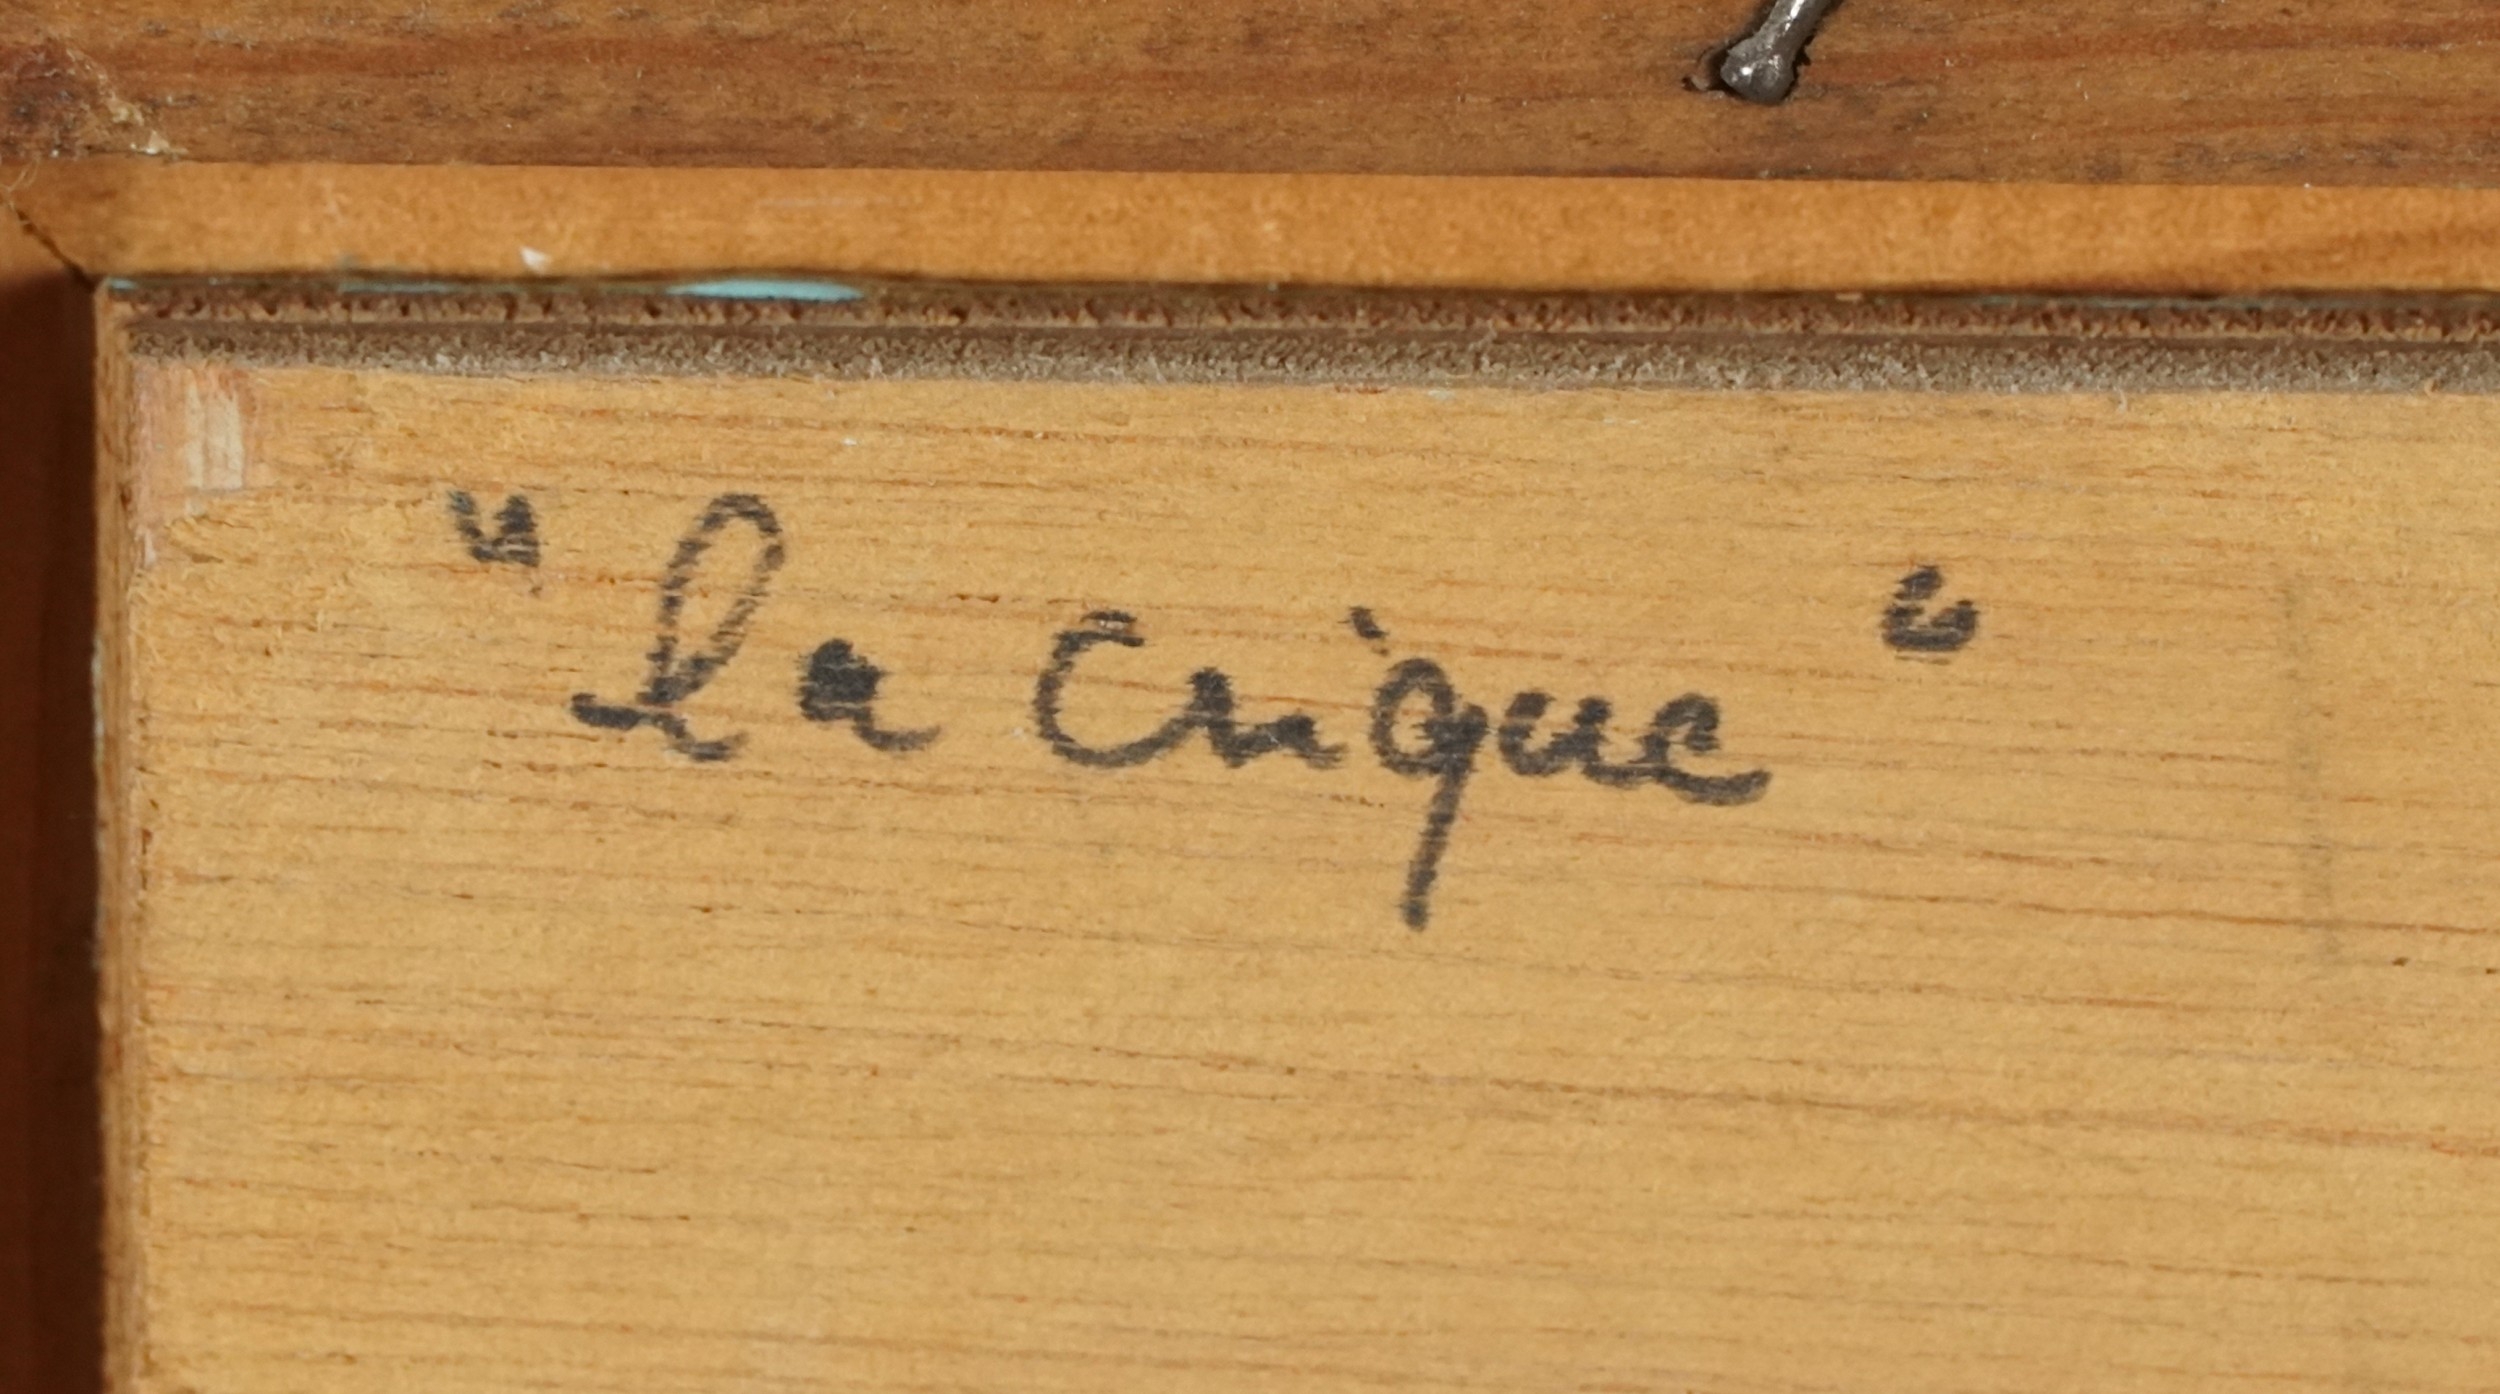 "la Crique"